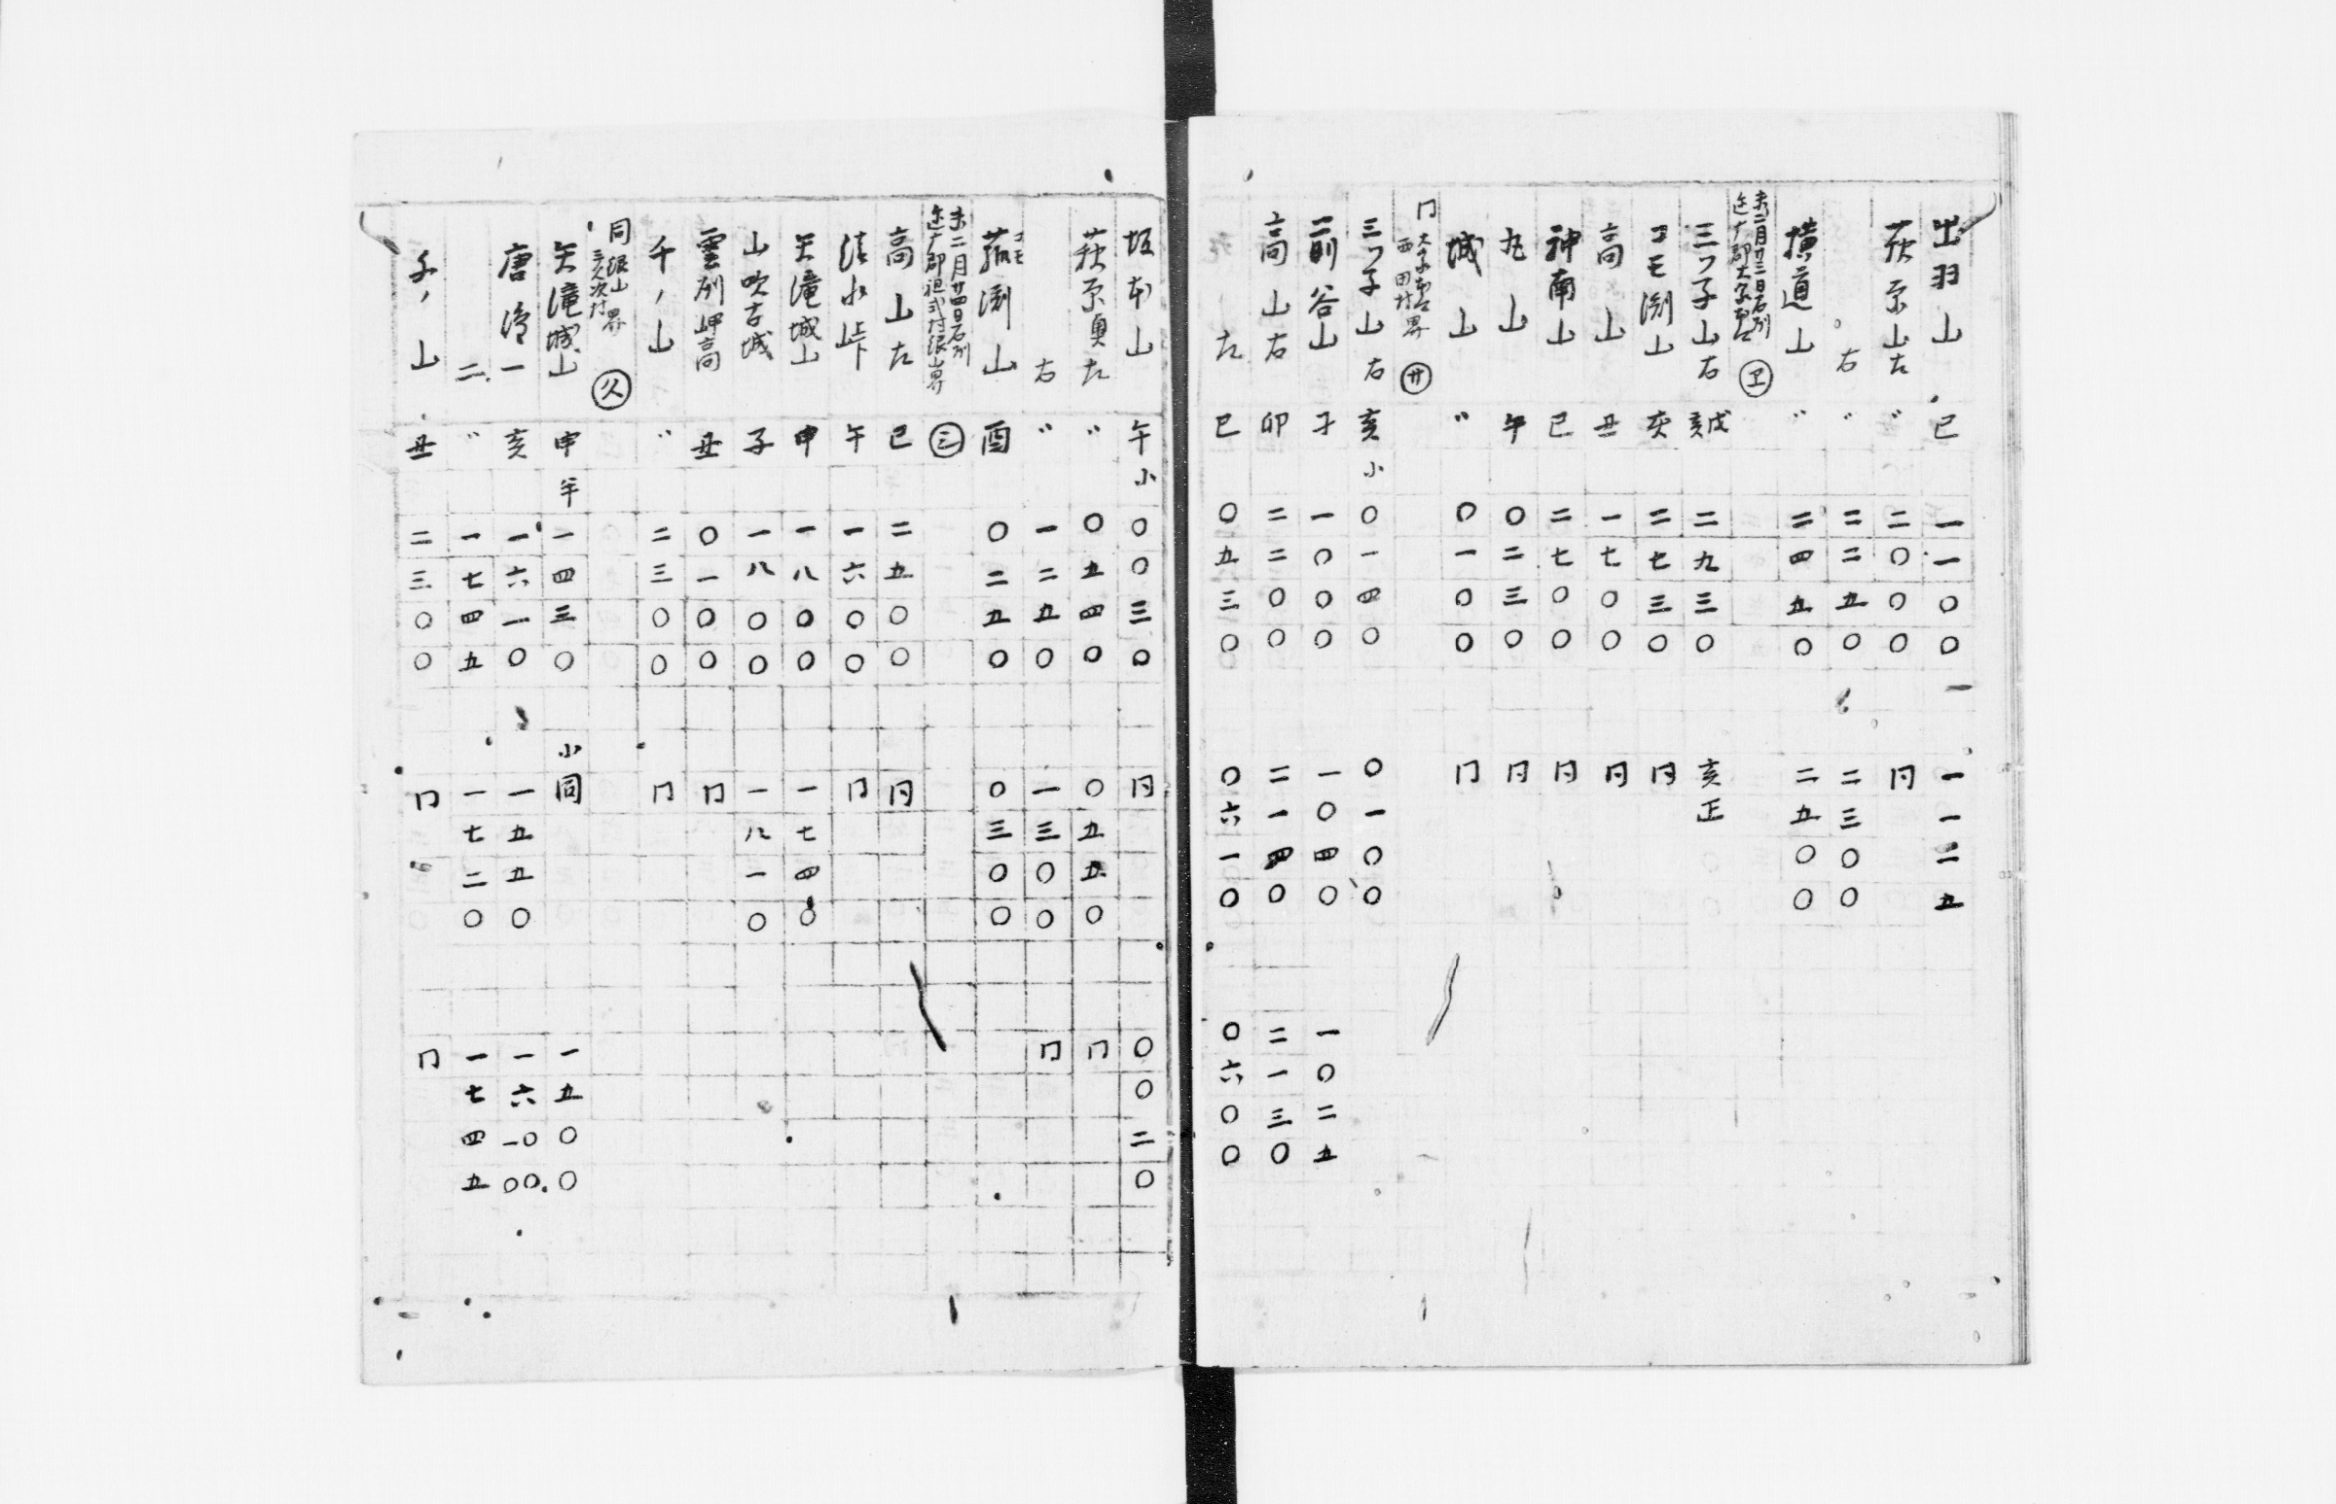 出羽山 巳 一一〇〇 一一二五
荻原山左 〃 二〇〇〇 同
〃右 〃 二二五〇 二三〇〇
横道山 〃 二四五〇 二五〇〇
未二月廿三日石列
迩广郡大家
三ツ子山右 亥戌 二九三〇 亥正
コモ渕山 亥 二七三〇 同
高山 丑 一七〇〇 同
神南山 巳 二七〇〇 同
丸山 午 〇二三〇 同
城山 〃 〇一〇〇 同
同 大家 西田村界 サ
三ツ子山右 亥小 〇一四〇 〇一〇〇
前谷山 子 一〇〇〇 一〇四〇 一〇二五
高山右 卯 二二〇〇 二一四〇 二一三〇
左 巳 〇五三〇 〇六一〇 〇六〇〇
坂本山 午小 〇〇三〇 同 〇〇二〇
荻原奥左 〃 〇五四〇 〇五五〇 同
右 〃 一二五〇 一三〇〇 同
コモ
菰渕山 酉 〇二五〇 〇三〇〇
未二月廿四日石列
迩广郡祖式村銀山界 ミ
高山左 巳 二五〇〇 同
清水峠 午 一六〇〇 同
矢滝城山 申 一八〇〇 一七四〇
山吹古城 子 一八〇〇 一八一〇
雲列岬高 丑 〇一〇〇 同
千ノ山 〃 二三〇〇 同
同銀山界
三久次村 久
矢滝城山 申半 一四三〇 小同 一五〇〇
唐滝一 亥 一六一〇 一五五〇 一六一〇〇〇
二 〃 一七四五 一七二〇 一七四五
千ノ山 丑 二三〇〇 同 同